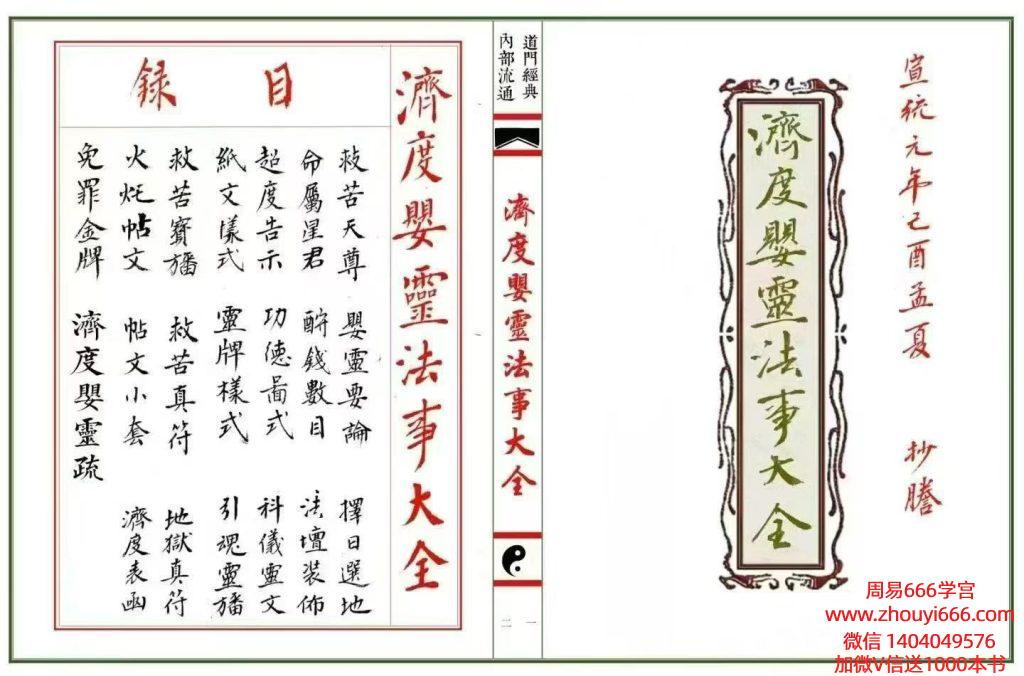 宣統元年己酉孟夏 抄謄
濟度嬰靈法事大全
道門經典
內部流通
濟度嬰靈法事大全
一
二
濟度嬰靈法事大全
目錄
救苦天尊 嬰靈要論 擇日選地
命屬星君 酧錢數目 法壇裝佈
超度告示 功德啚式 科儀靈文
紙文樣式 靈牌樣式 引魂靈旛
救苦寶旛 救苦真符 地獄真符
火炉帖文 帖文小套 濟度表函
免罪金牌 濟度嬰靈疏
周易666学宫
www.zhouyi666.com
微信 1404049576
加微V信送1000本书